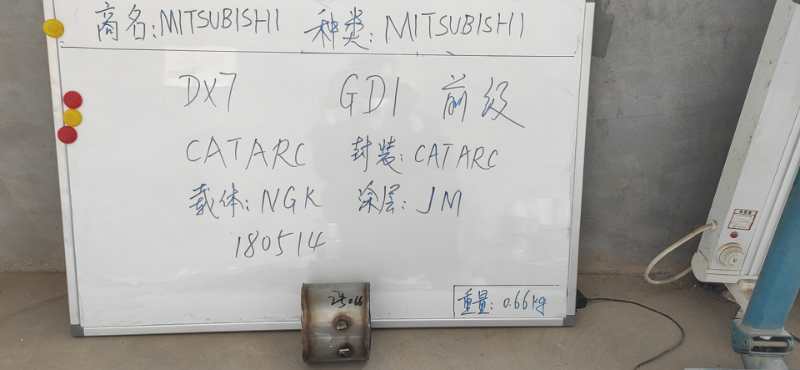 商名:MITSUBISHI 种类:MITSUBISHI
DX7 GDI 前级
CATARC 封装:CATARC
载体:NGK 涂层:JM
180514
重量:0.66kg